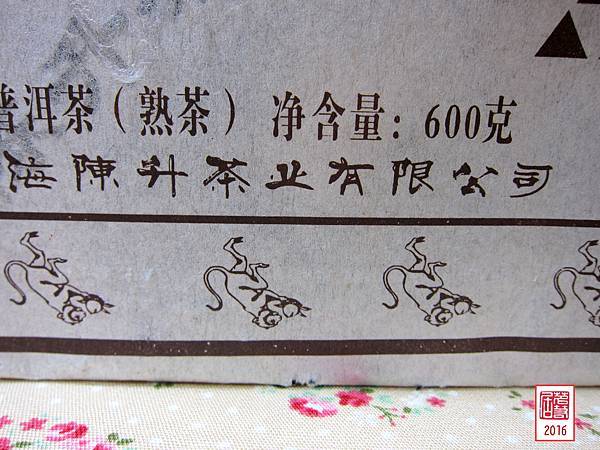 普洱茶(熟茶) 净含量: 600克
海陳升茶业有限公司
2016